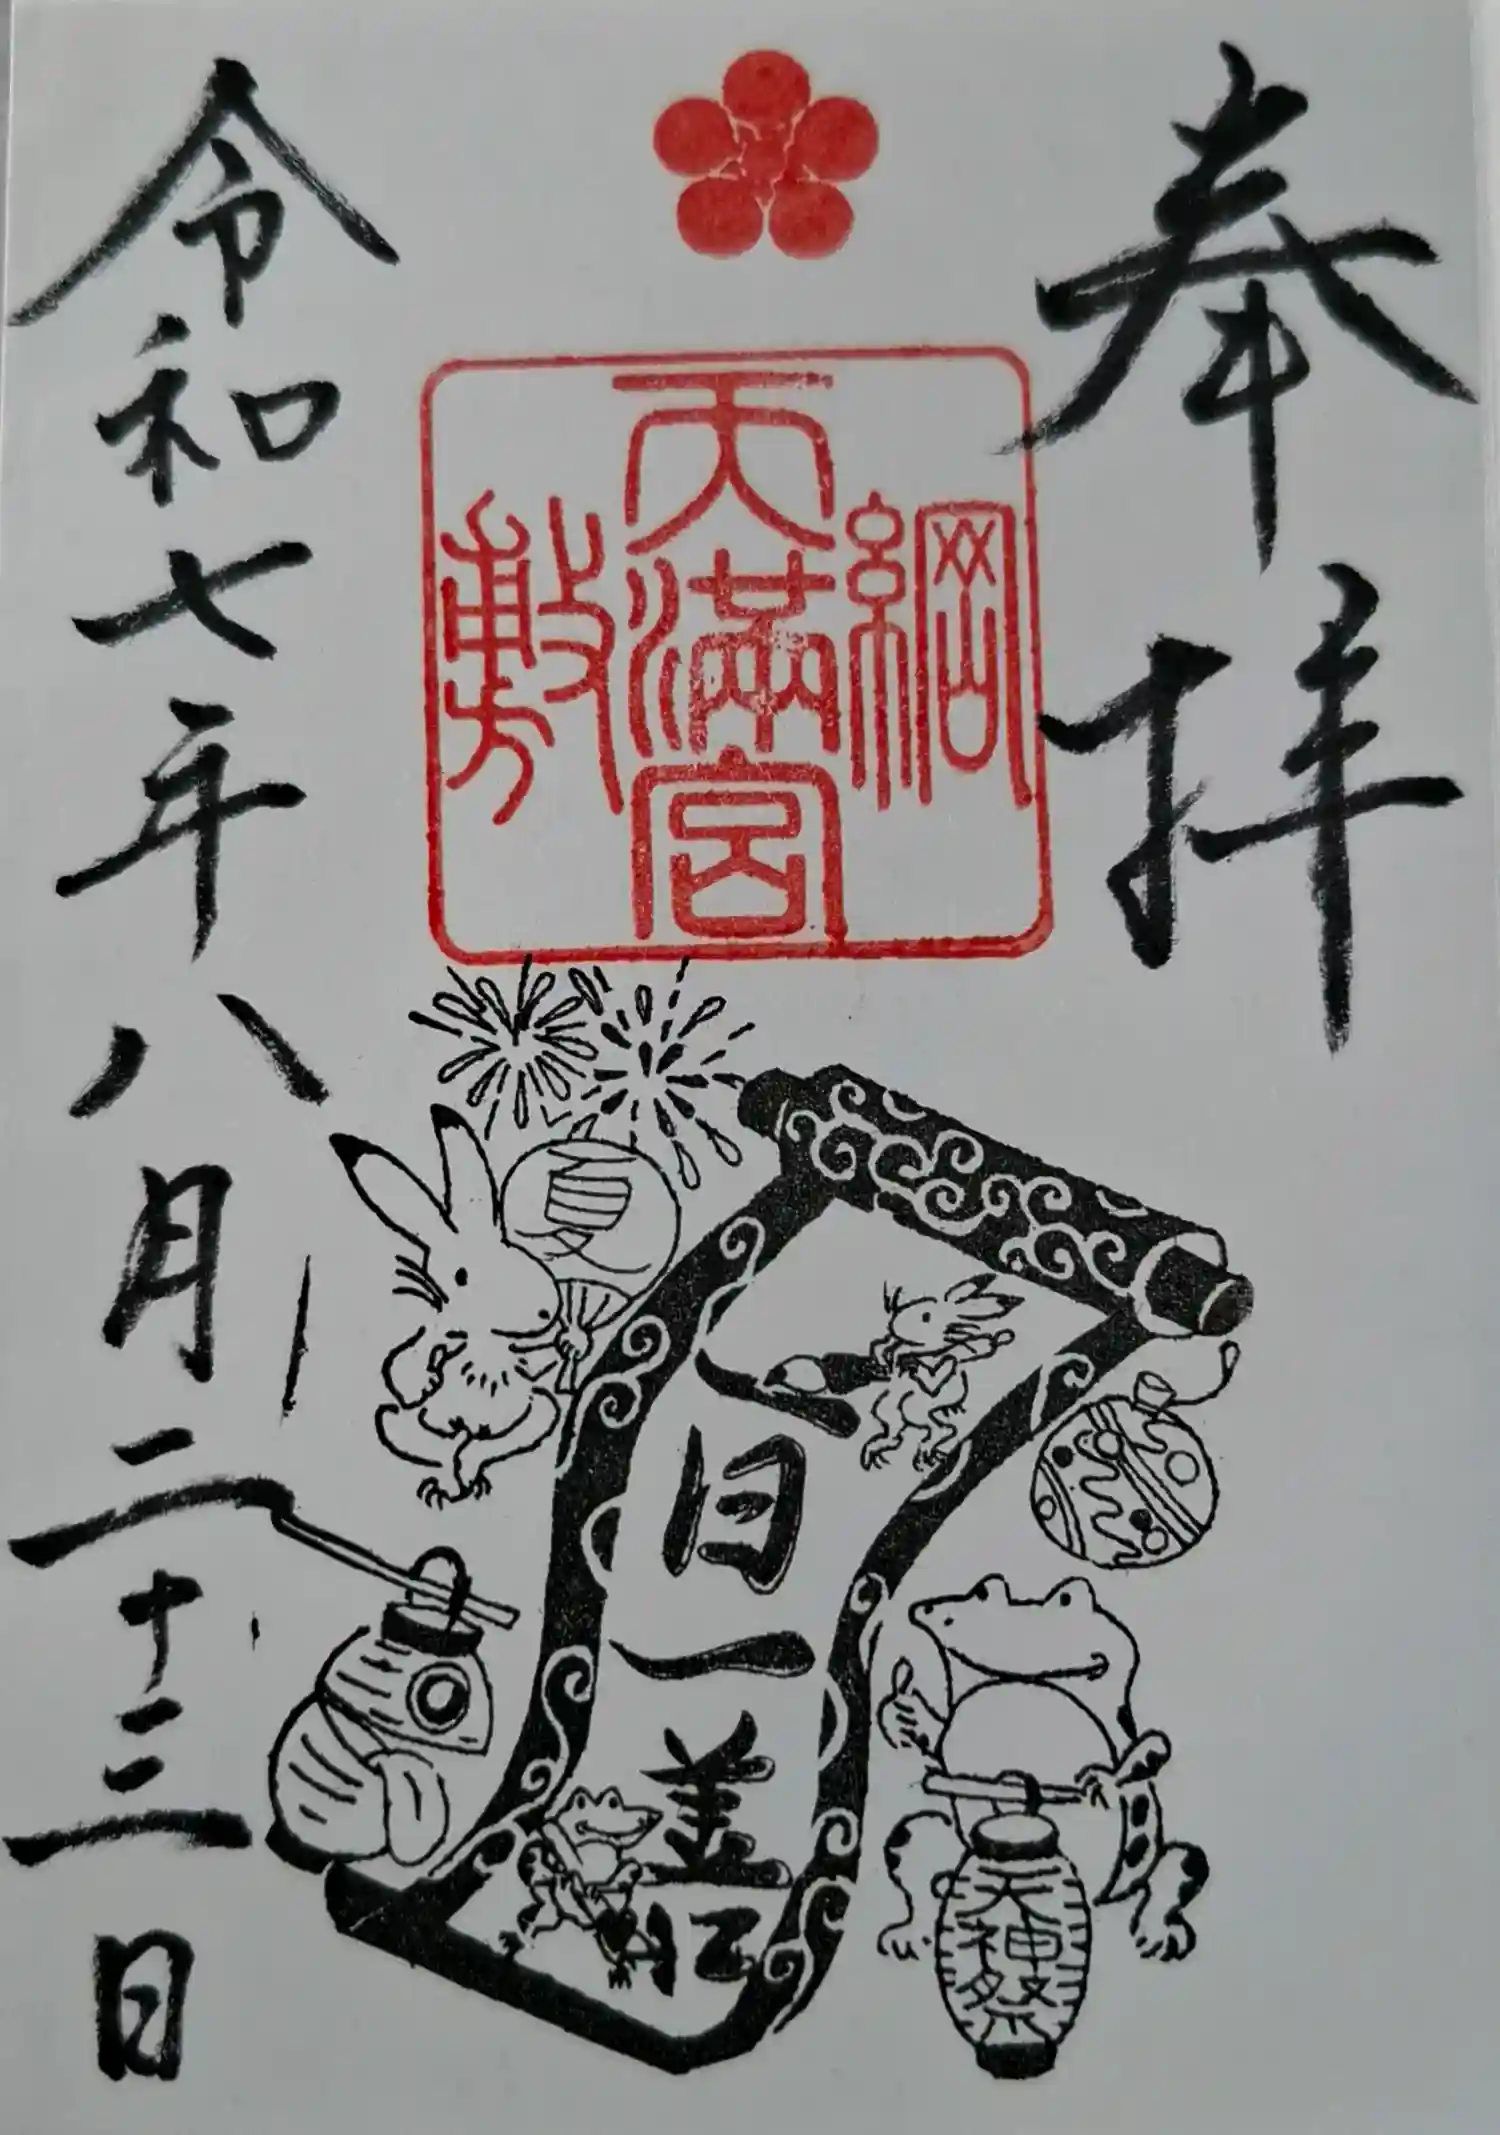 奉拝
綱
天満宮
敷
夏
一日一善
天神祭
令和七年八月二十三日